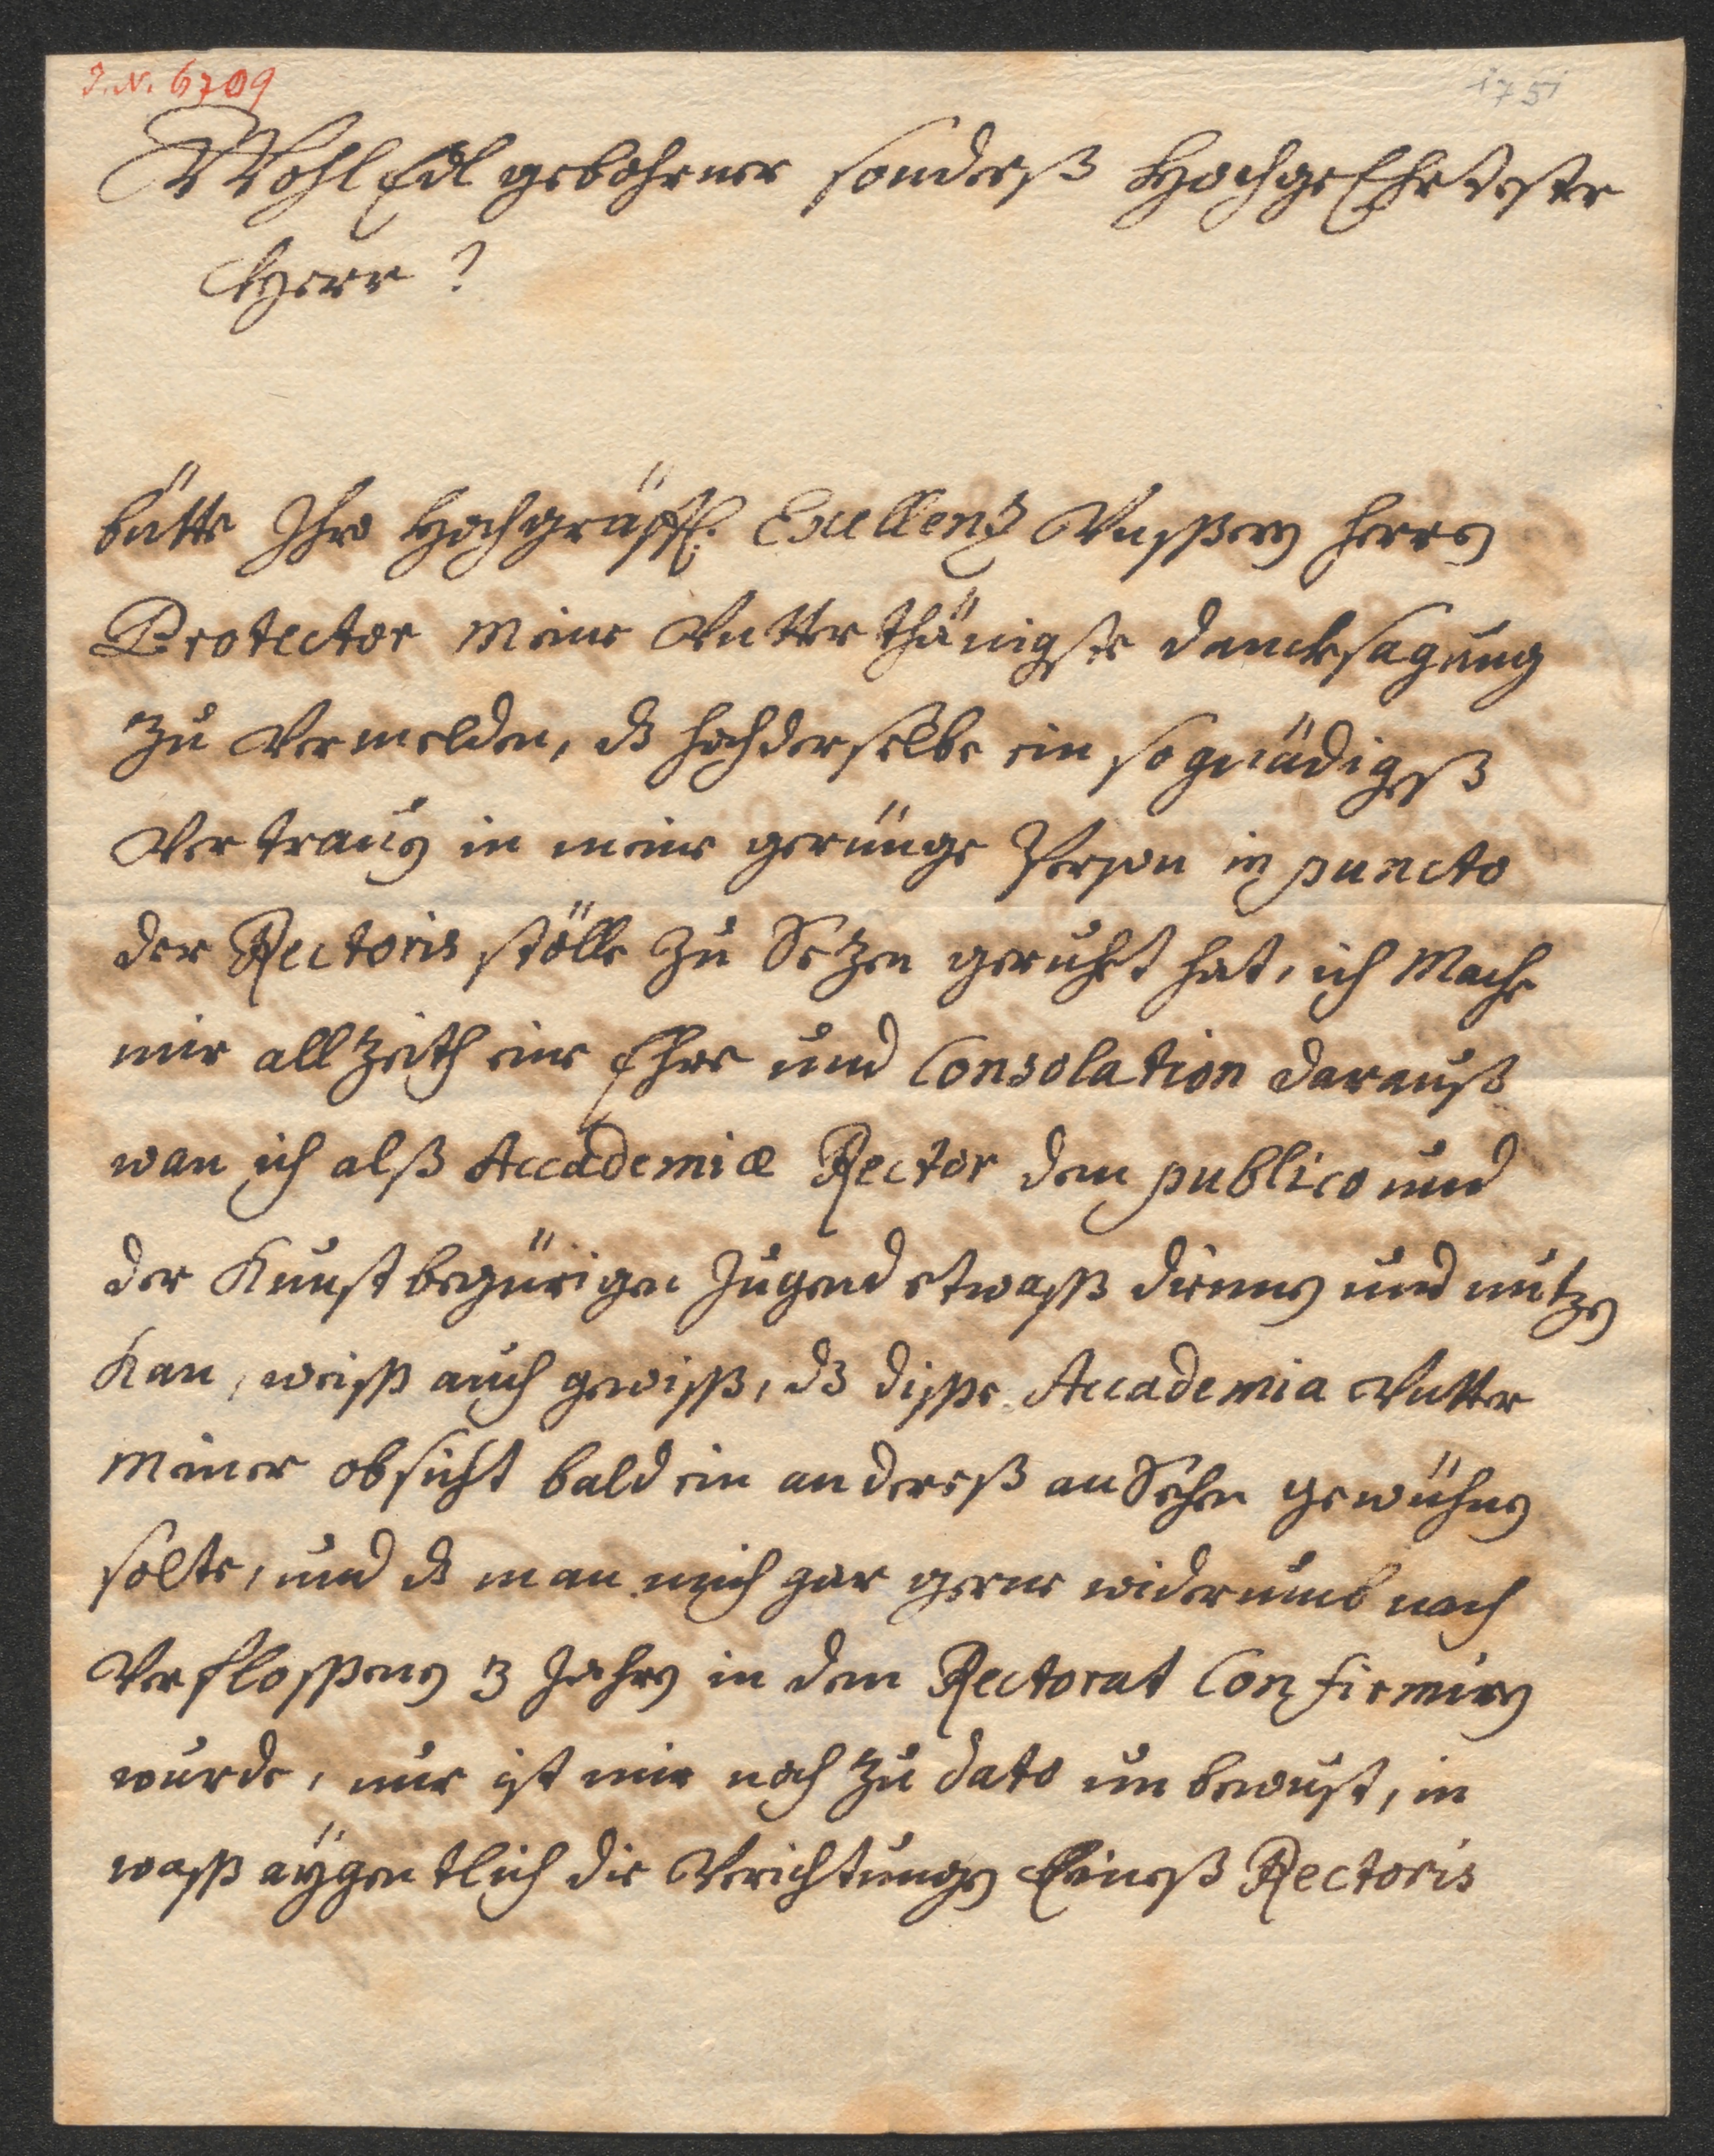 J. N. 6709
1751
Wohl Edl gebohrner sonderß HochgeEhrdester
Herr?
bütte Ihro Hochgräffl. Excellenz Vnßern herrn
Protector meine Vntterthänigste dancksagung
zu Vermelden, dß hochderselbe ein so gnädigeß
Vertrauen in meine gerünge Person in puncto
der Rectoris stölle zu Setzen geruhet hat, ich Mache
mir allzeith eine Ehre und Consolation darauß
wan ich alß Accademiæ Rector dem publico und
der Kunst begürigen Jugend etwaß dienen und nutzen
Kan, weiß auch gewiß, dß diße Accademia Vntter
Meiner obsicht bald ein andereß anSehen gewühnen
solte, und dß man mich gar gerne widerumb nach
Verfloßenen 3 Jahren in dem Rectorat Confirmiren
wurde, nur ist mir noch zu dato unbewust, in
waß aÿgentlich die Verichtungen Eineß Rectoris